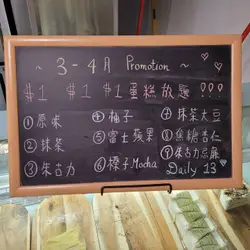 ~ 3-4月 Promotion ~
$1 $1 $1蛋糕放題 !!!
① 原味 ④ 柚子 ⑦ 抹茶大豆
② 抹茶 ⑤ 富士蘋果 ⑧ 焦糖杏仁
③ 朱古力 ⑥ 榛子Mocha ⑨ 朱古力
Daily 13